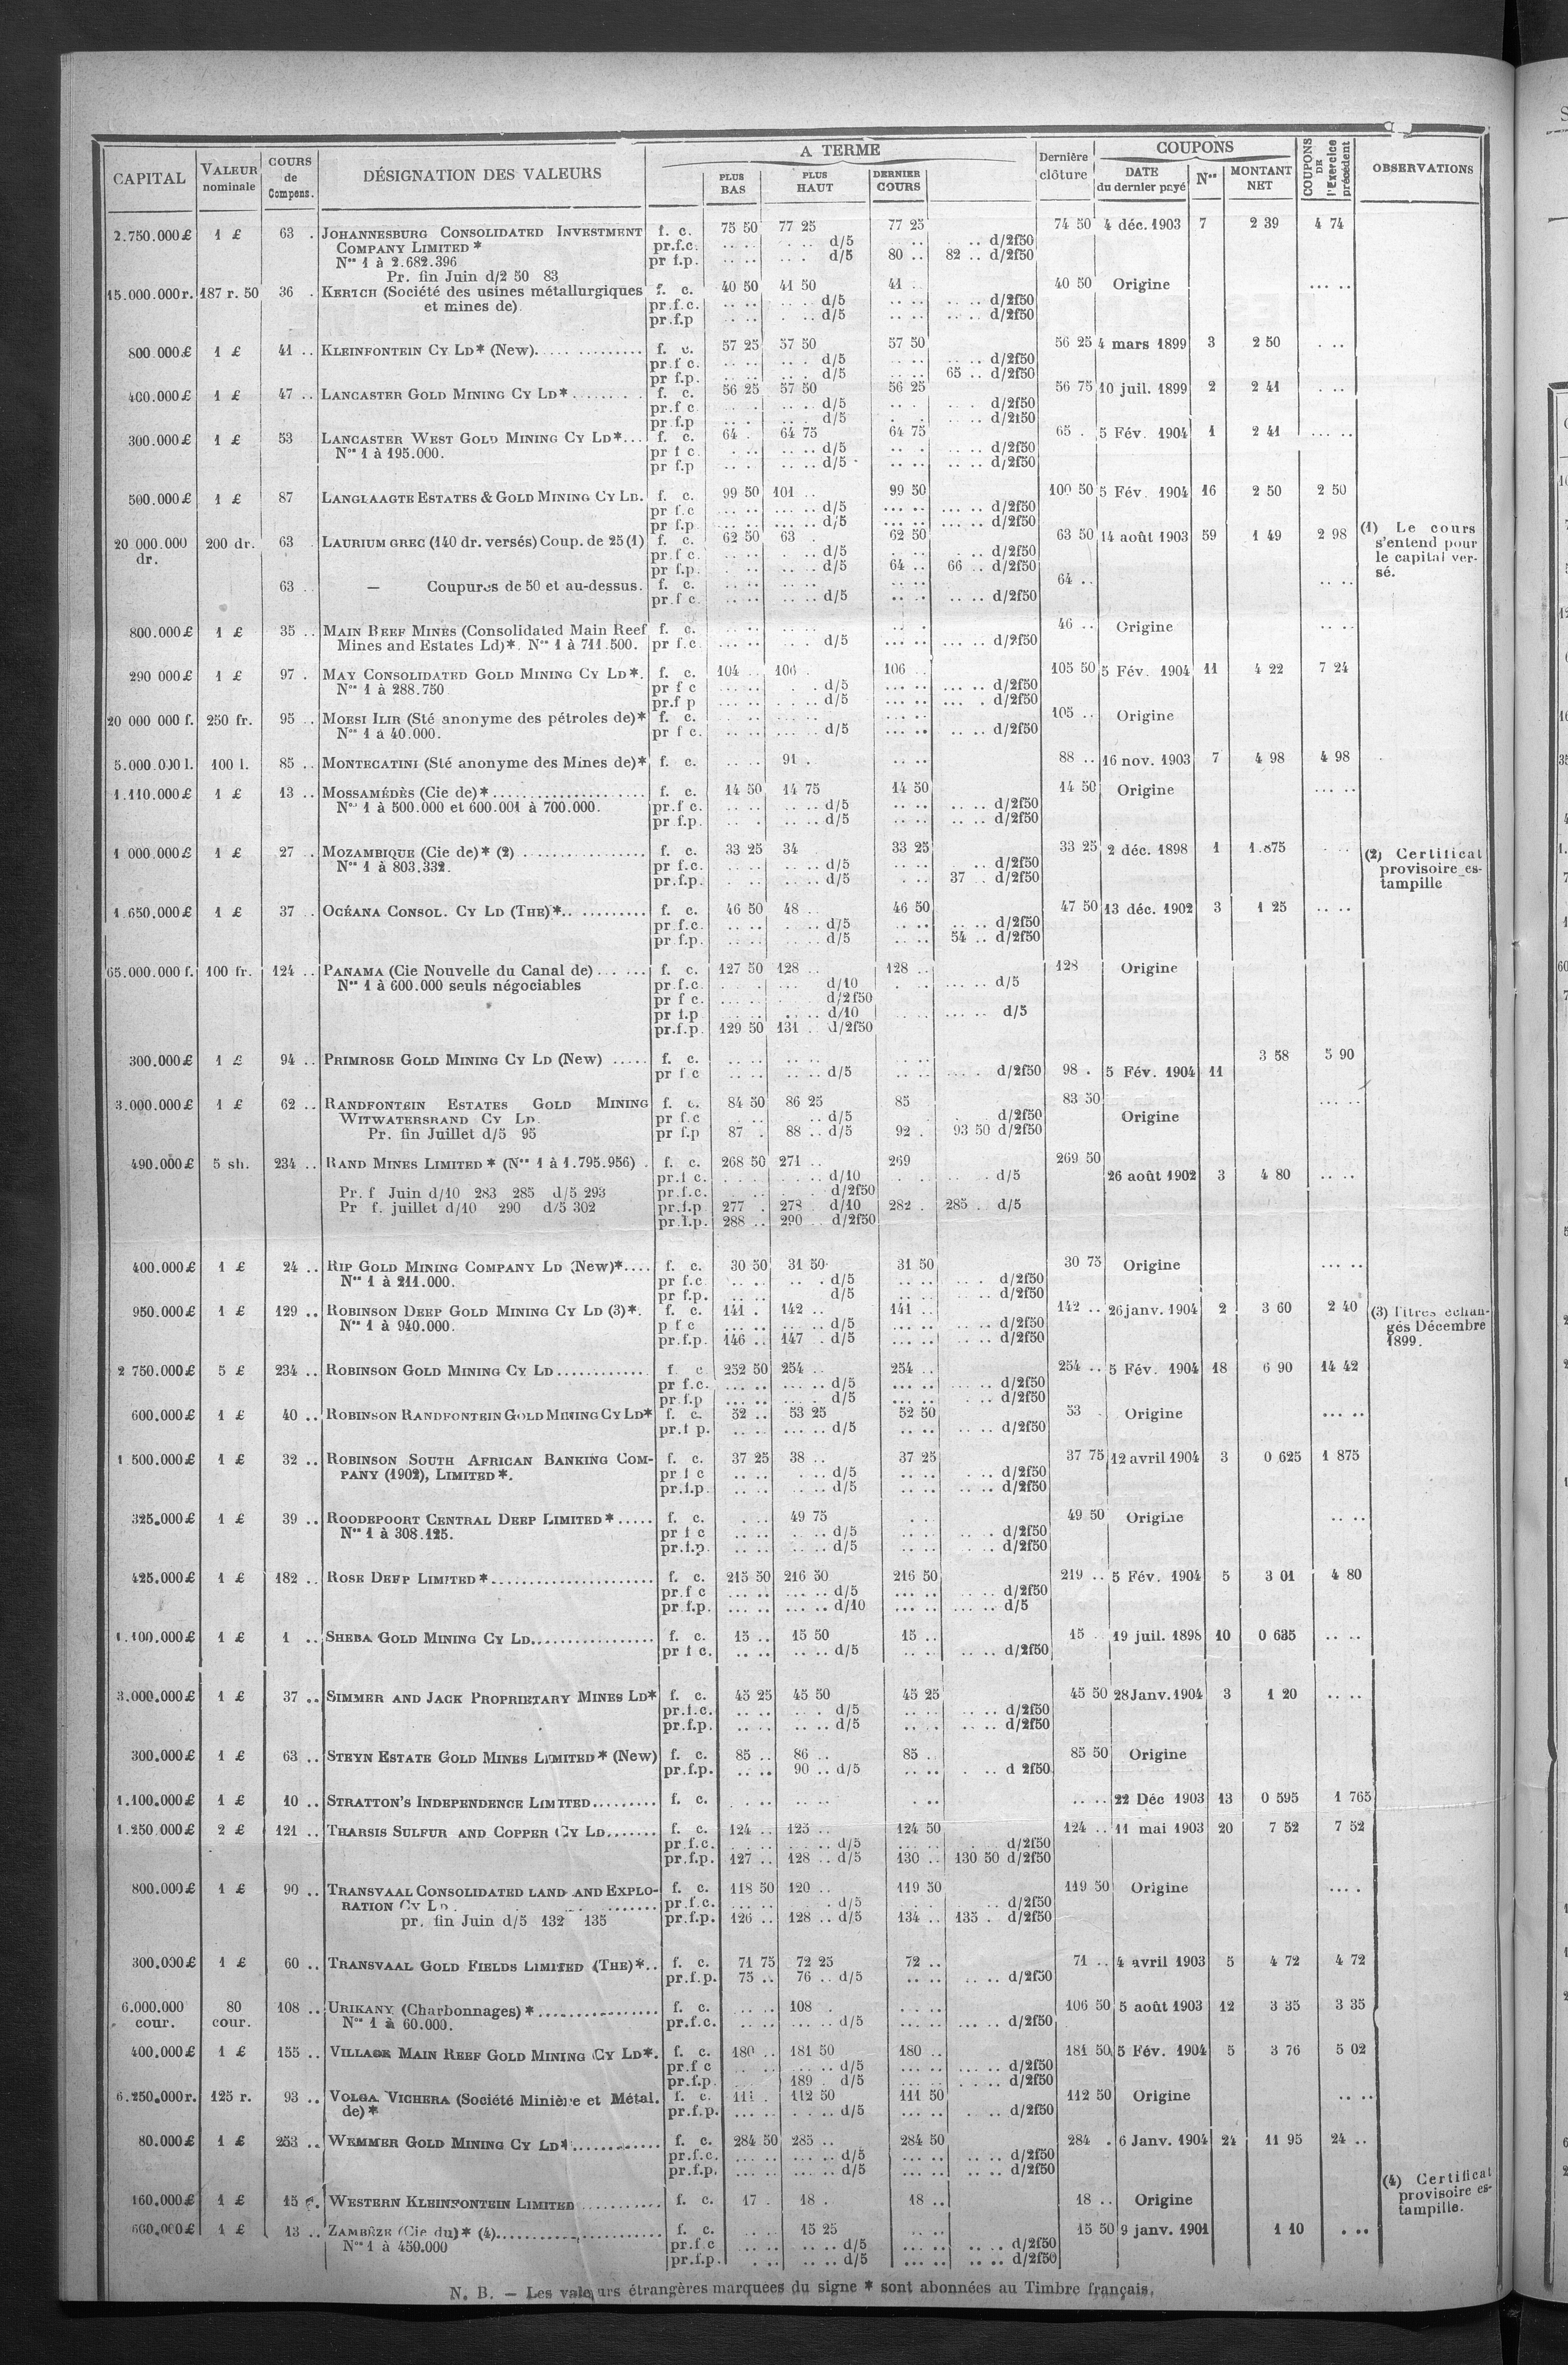 CAPITAL | VALEUR nominale | COURS de Compens. | DÉSIGNATION DES VALEURS | A TERME | PLUS BAS | PLUS HAUT | DERNIER COURS | Dernière clôture | COUPONS | DATE du dernier payé | Nos | MONTANT NET | COUPONS DE l'Exercice précédent | OBSERVATIONS
2.750.000£ 1 £ 63 . JOHANNESBURG CONSOLIDATED INVESTMENT f. c. 75 50 77 25 77 25 74 50 4 déc. 1903 7 2 39 4 74
COMPANY LIMITED * pr.f.c. .. .. .. .. d/5 .. .. d/2f50
Nos 1 à 2.682.396 pr f.p. .. .. .. . d/5 80 .. 82 .. d/2f50
Pr. fin Juin d/2 50 83
15.000.000r. 187 r. 50 36 . KERTCH (Société des usines métallurgiques f. c. 40 50 41 50 41 .. 40 50 Origine ... ..
et mines de) pr.f.c. .. .. .. .. d/5 .. .. .. .. d/2f50
pr.f.p .. .. .. .. d/5 .. .. .. .. d/2f50
800.000£ 1 £ 41 .. KLEINFONTEIN CY LD* (New)............... f. c. 57 25 57 50 57 50 56 25 4 mars 1899 3 2 50 . ..
pr.f c. .. .. .. .. d/5 .. .. .. .. d/2f50
pr f.p. .. .. .. . d/5 .. .. 65 .. d/2f50
400.000£ 1 £ 47 .. LANCASTER GOLD MINING CY LD*........ f. c. 56 25 57 50 56 25 56 75 10 juil. 1899 2 2 41 . ..
pr.f c .. . .. .. d/5 .. . .. . d/2f50
pr f.p .. . .. .. d/5 .. . . d/2f50
300.000£ 1 £ 53 LANCASTER WEST GOLD MINING CY LD*... f. c. 64 . 64 75 64 75 65 . 5 Fév. 1904 1 2 41 ... ..
Nos 1 à 195.000. pr f c. . .. .. .. d/5 .. . .. .. d/2f50
pr f.p .. . .. .. d/5 .. .. .. .. d/2f50
500.000£ 1 £ 87 LANGLAAGTE ESTATES & GOLD MINING CY LD. f. c. 99 50 101 .. 99 50 100 50 5 Fév. 1904 16 2 50 2 50
pr f.c ... .. ... .. d/5 ... .. ... .. d/2f50
pr f.p. .. .. ... .. d/5 ... .. ... .. d/2f50
20 000.000 200 dr. 63 LAURIUM GREC (140 dr. versés) Coup. de 25 (1) f. c. 62 50 63 . 62 50 63 50 14 août 1903 59 1 49 2 98 (1) Le cours
dr. pr.f c. .. .. .. .. d/5 . .. d/2f50 s'entend pour
pr f.p. .. .. .. .. d/5 64 .. 66 .. d/2f50 le capital ver-
63 .. — Coupures de 50 et au-dessus. f. c. .. .. .. .. .. .. 64 .. .. .. sé.
pr.f c. .. .. .. .. d/5 .. .. .. .. d/2f50
800.000£ 1 £ 35 .. MAIN REEF MINES (Consolidated Main Reef f. c. .. .. .. .. .. . 46 .. Origine .. ..
Mines and Estates Ld)*. Nos 1 à 711.500. pr f.c. ... .. .. . d/5 ... .. ... .. d/2f50
290 000£ 1 £ 97 . MAY CONSOLIDATED GOLD MINING CY LD*. f. c. 104 .. 106 . 106 .. 105 50 5 Fév. 1904 11 4 22 7 24
Nos 1 à 288.750 pr f c ... .. . . d/5 ... .. ... .. d/2f50
pr.f p ... .. .. . d/5 ... .. ... . d/2f50
20 000 000 f. 250 fr. 95 .. MOESI ILIR (Sté anonyme des pétroles de)* f. c. .. .. .. .. .. .. 105 .. Origine
Nos 1 à 40.000. pr f c. .. .. .. .. d/5 ... .. .. .. d/2f50
5.000.000 l. 100 l. 85 .. MONTECATINI (Sté anonyme des Mines de)* f. c. .. .. 91 . .. .. 88 .. 16 nov. 1903 7 4 98 4 98
1.110.000£ 1 £ 13 .. MOSSAMÉDÈS (Cie de)*.................... f. c. 14 50 14 75 14 50 14 50 Origine ... ..
Nos 1 à 500.000 et 600.001 à 700.000. pr.f c. .. .. .. .. d/5 .. .. .. .. d/2f50
pr f.p. .. . .. .. d/5 .. .. .. .. d/2f50
1 000.000£ 1 £ 27 .. MOZAMBIQUE (Cie de)* (2) ................ f. c. 33 25 34 33 25 33 25 2 déc. 1898 1 1.875 . .. (2) Certificat
Nos 1 à 803.332. pr f.c. .. .. .. .. d/5 .. .. .. d/2f50 provisoire es-
pr.f.p. .. .. .. .. d/5 . .. 37 .. d/2f50 tampille
1.650.000£ 1 £ 37 .. OCÉANA CONSOL. CY LD (THE)*............ f. c. 46 50 48 .. 46 50 47 50 13 déc. 1902 3 1 25 .. ..
pr.f.c. .. .. .. .. d/5 .. .. .. .. d/2f50
pr.f.p. .. .. .. .. d/5 .. .. 54 .. d/2f50
65.000.000 f. 100 fr. 124 .. PANAMA (Cie Nouvelle du Canal de)....... f. c. 127 50 128 .. 128 .. 128 Origine
Nos 1 à 600.000 seuls négociables pr.f.c. . .. ... d/10 . .. ... .. d/5
pr f c. ... .. d/2f50
pr f.p .. .. .. .. d/10 .. .. ... .. d/5
pr.f.p. 129 50 131 .. d/2f50
300.000£ 1 £ 94 .. PRIMROSE GOLD MINING CY LD (New) ..... f. c. .. .. .. .. .. .. 3 58 5 90
pr f c .. .. .. .. d/5 .. .. .. . d/2f50 98 . 5 Fév. 1904 11
3.000.000£ 1 £ 62 .. RANDFONTEIN ESTATES GOLD MINING f. c. 84 50 86 25 85 83 50 ... ..
WITWATERSRAND CY LD. pr f.c .. .. .. d/5 . d/2f50 Origine
Pr. fin Juillet d/5 95 pr f.p 87 . 88 .. d/5 92 . 93 50 d/2f50
490.000£ 5 sh. 234 .. RAND MINES LIMITED * (Nos 1 à 1.795.956) . f. c. 268 50 271 .. 269 269 50
pr.f c. . .. .. d/10 . .. . d/5 26 août 1902 3 4 80 .. ..
Pr. f Juin d/10 283 285 d/5 293 pr.f.c. .. d/2f50
Pr f. juillet d/10 290 d/5 302 pr.f.p 277 . 278 . d/10 282 . 285 . d/5
pr.f.p. 288 .. 290 .. d/2f50
400.000£ 1 £ 24 .. RIP GOLD MINING COMPANY LD (New)*.... f. c. 30 50 31 50 31 50 30 75 Origine ... ..
Nos 1 à 211.000. pr f.c .. .. .. . d/5 .. .. .. . d/2f50
pr f.p. .. .. d/5 .. .. .. .. d/2f50
950.000£ 1 £ 129 .. ROBINSON DEEP GOLD MINING CY LD (3)*. f. c. 141 . 142 .. 141 .. 142 .. 26 janv. 1904 2 3 60 2 40 (3) Titres échan-
Nos 1 à 940.000. p f c ... .. ... .. d/5 ... .. ... .. d/2f50 gés Décembre
pr.f.p. 146 .. 147 . d/5 ... .. ... .. d/2f50 1899.
2 750.000£ 5 £ 234 .. ROBINSON GOLD MINING CY LD............ f. c 252 50 254 .. 254 .. 254 .. 5 Fév. 1904 18 6 90 14 42
pr f.c. ... .. ... .. d/5 ... .. ... .. d/2f50
pr.f.p ... .. ... . d/5 ... .. . .. d/2f50
600.000£ 1 £ 40 .. ROBINSON RANDFONTEIN GOLD MINING CY LD* f. c. 52 .. 53 25 52 50 53 . Origine ... ..
pr.f p. .. .. ... .. d/5 .. .. .. .. d/2f50
1 500.000£ 1 £ 32 .. ROBINSON SOUTH AFRICAN BANKING COM- f. c. 37 25 38 .. 37 25 37 75 12 avril 1904 3 0 625 1 875
PANY (1902), LIMITED*. pr f c .. .. . .. d/5 .. .. . .. d/2f50
pr.f.p. .. .. .. .. d/5 .. .. .. .. d/2f50
325.000£ 1 £ 39 .. ROODEPOORT CENTRAL DEEP LIMITED*..... f. c. . .. 49 75 . .. 49 50 Origine .. ..
Nos 1 à 308.125. pr f c .. .. . .. d/5 .. .. .. . d/2f50
pr.f.p. .. .. .. .. d/5 .. .. . .. d/2f50
425.000£ 1 £ 182 .. ROSE DEEP LIMITED*..................... f. c. 215 50 216 50 216 50 219 .. 5 Fév. 1904 5 3 01 4 80
pr.f c ... .. ... .. d/5 ... .. .. .. d/2f50
pr.f.p. ... .. ... .. d/10 ... .. ... .. d/5
1.100.000£ 1 £ 1 .. SHEBA GOLD MINING CY LD................ f. c. 15 .. 15 50 15 .. 15 . 19 juil. 1898 10 0 635 .. ..
pr f c. .. .. .. .. d/5 .. .. .. .. d/2f50
3.000.000£ 1 £ 37 .. SIMMER AND JACK PROPRIETARY MINES LD* f. c. 45 25 45 50 45 25 45 50 28 Janv. 1904 3 1 20 .. ..
pr.f.c. .. .. .. . d/5 .. .. .. .. d/2f50
pr.f.p. .. .. .. .. d/5 .. .. .. .. d/2f50
300.000£ 1 £ 63 .. STEYN ESTATE GOLD MINES LIMITED* (New) f. c. 85 .. 86 .. 85 .. 85 50 Origine
pr.f.p. .. .. 90 .. d/5 .. .. . .. d 2f50
1.100.000£ 1 £ 10 .. STRATTON'S INDEPENDENCE LIMITED......... f. c. . .. .. .. . .. .. .. 22 Déc 1903 13 0 595 1 765
1.250 000£ 2 £ 121 .. THARSIS SULFUR AND COPPER CY LD....... f. c. 124 .. 125 .. 124 50 124 .. 11 mai 1903 20 7 52 7 52
pr.f.c. . .. .. .. d/5 ... . . d/2f50
pr.f.p. 127 .. 128 .. d/5 130 .. 130 50 d/2f50
800.000£ 1 £ 90 .. TRANSVAAL CONSOLIDATED LAND AND EXPLO- f. c. 118 50 120 .. 119 50 119 50 Origine ... .
RATION CY LD. ....... pr.f.c. ... .. . d/5 . . .. d/2f50
pr. fin Juin d/5 132 135 pr.f.p. 126 .. 128 .. d/5 134 .. 135 . d/2f50
300.000£ 1 £ 60 .. TRANSVAAL GOLD FIELDS LIMITED (THE)*.. f. c. 71 75 72 25 72 .. 71 .. 4 avril 1903 5 4 72 4 72
pr.f.p. 75 .. 76 .. d/5 .. .. .. .. d/2f50
6.000.000 80 108 .. URIKANY (Charbonnages)*................ f. c. ... .. 108 . ... .. 106 50 5 août 1903 12 3 35 3 35
cour. cour. Nos 1 à 60.000. pr.f.c. ... .. ... .. d/5 ... .. ... .. d/2f50
400.000£ 1 £ 155 .. VILLAGE MAIN REEF GOLD MINING CY LD*. f. c. 180 .. 181 50 180 .. 181 50 5 Fév. 1904 5 3 76 5 02
pr.f c .. . ... .. d/5 ... .. ... .. d/2f50
pr.f.p. .. . 189 . d/5 ... .. . .. .. d/2f50
6.250.000r. 125 r. 93 .. VOLGA VICHERA (Société Minière et Métal. f. c. 111 . 112 50 111 50 112 50 Origine .. ..
de)* pr.f.p. ... .. . .. . d/5 ... .. . .. d/2f50
80.000£ 1 £ 253 .. WEMMER GOLD MINING CY LD*............ f. c. 284 50 285 .. 284 50 284 . 6 Janv. 1904 24 11 95 24 ..
pr.f.c. ... .. ... .. d/5 ... .. .. .. d/2f50
pr.f.p. ... .. ... .. d/5 ... .. .. .. d/2f50 (4) Certificat
160.000£ 1 £ 15 . WESTERN KLEINFONTEIN LIMITED ........... f. c. 17 . 18 . 18 .. 18 .. Origine provisoire es-
600.000£ 1 £ 13 .. ZAMBÈZE (Cie du)* (4)..................... f. c. .. . 15 25 .. .. 15 50 9 janv. 1901 1 10 . .. tampille.
Nos 1 à 450.000 pr.f.c .. .. .. .. d/5 ... .. .. . d/2f50
pr.f.p. . .. .. .. d/5 ... .. .. .. d/2f50
N. B. — Les valeurs étrangères marquees du signe * sont abonnées au Timbre français.